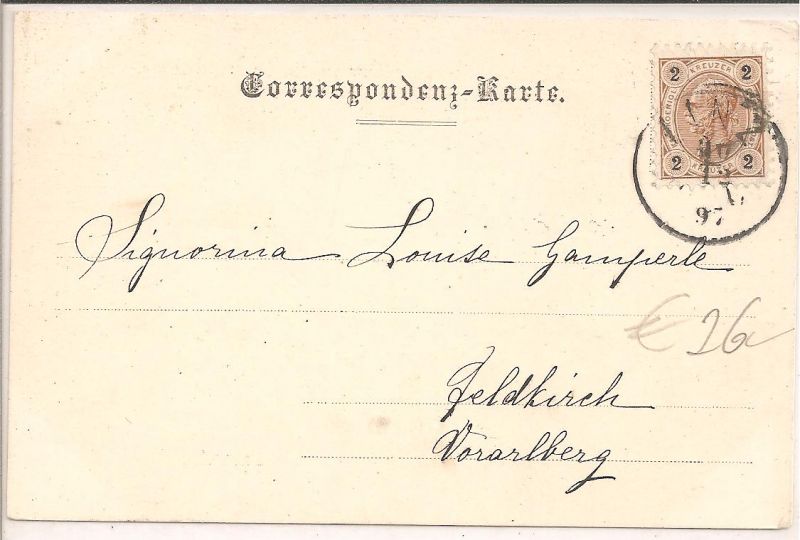 Correspondenz-Karte.
2 KREUZER 2
2 KREUZER 2
97
Signorina Louise Gamperle
€ 26
Feldkirch
Vorarlberg